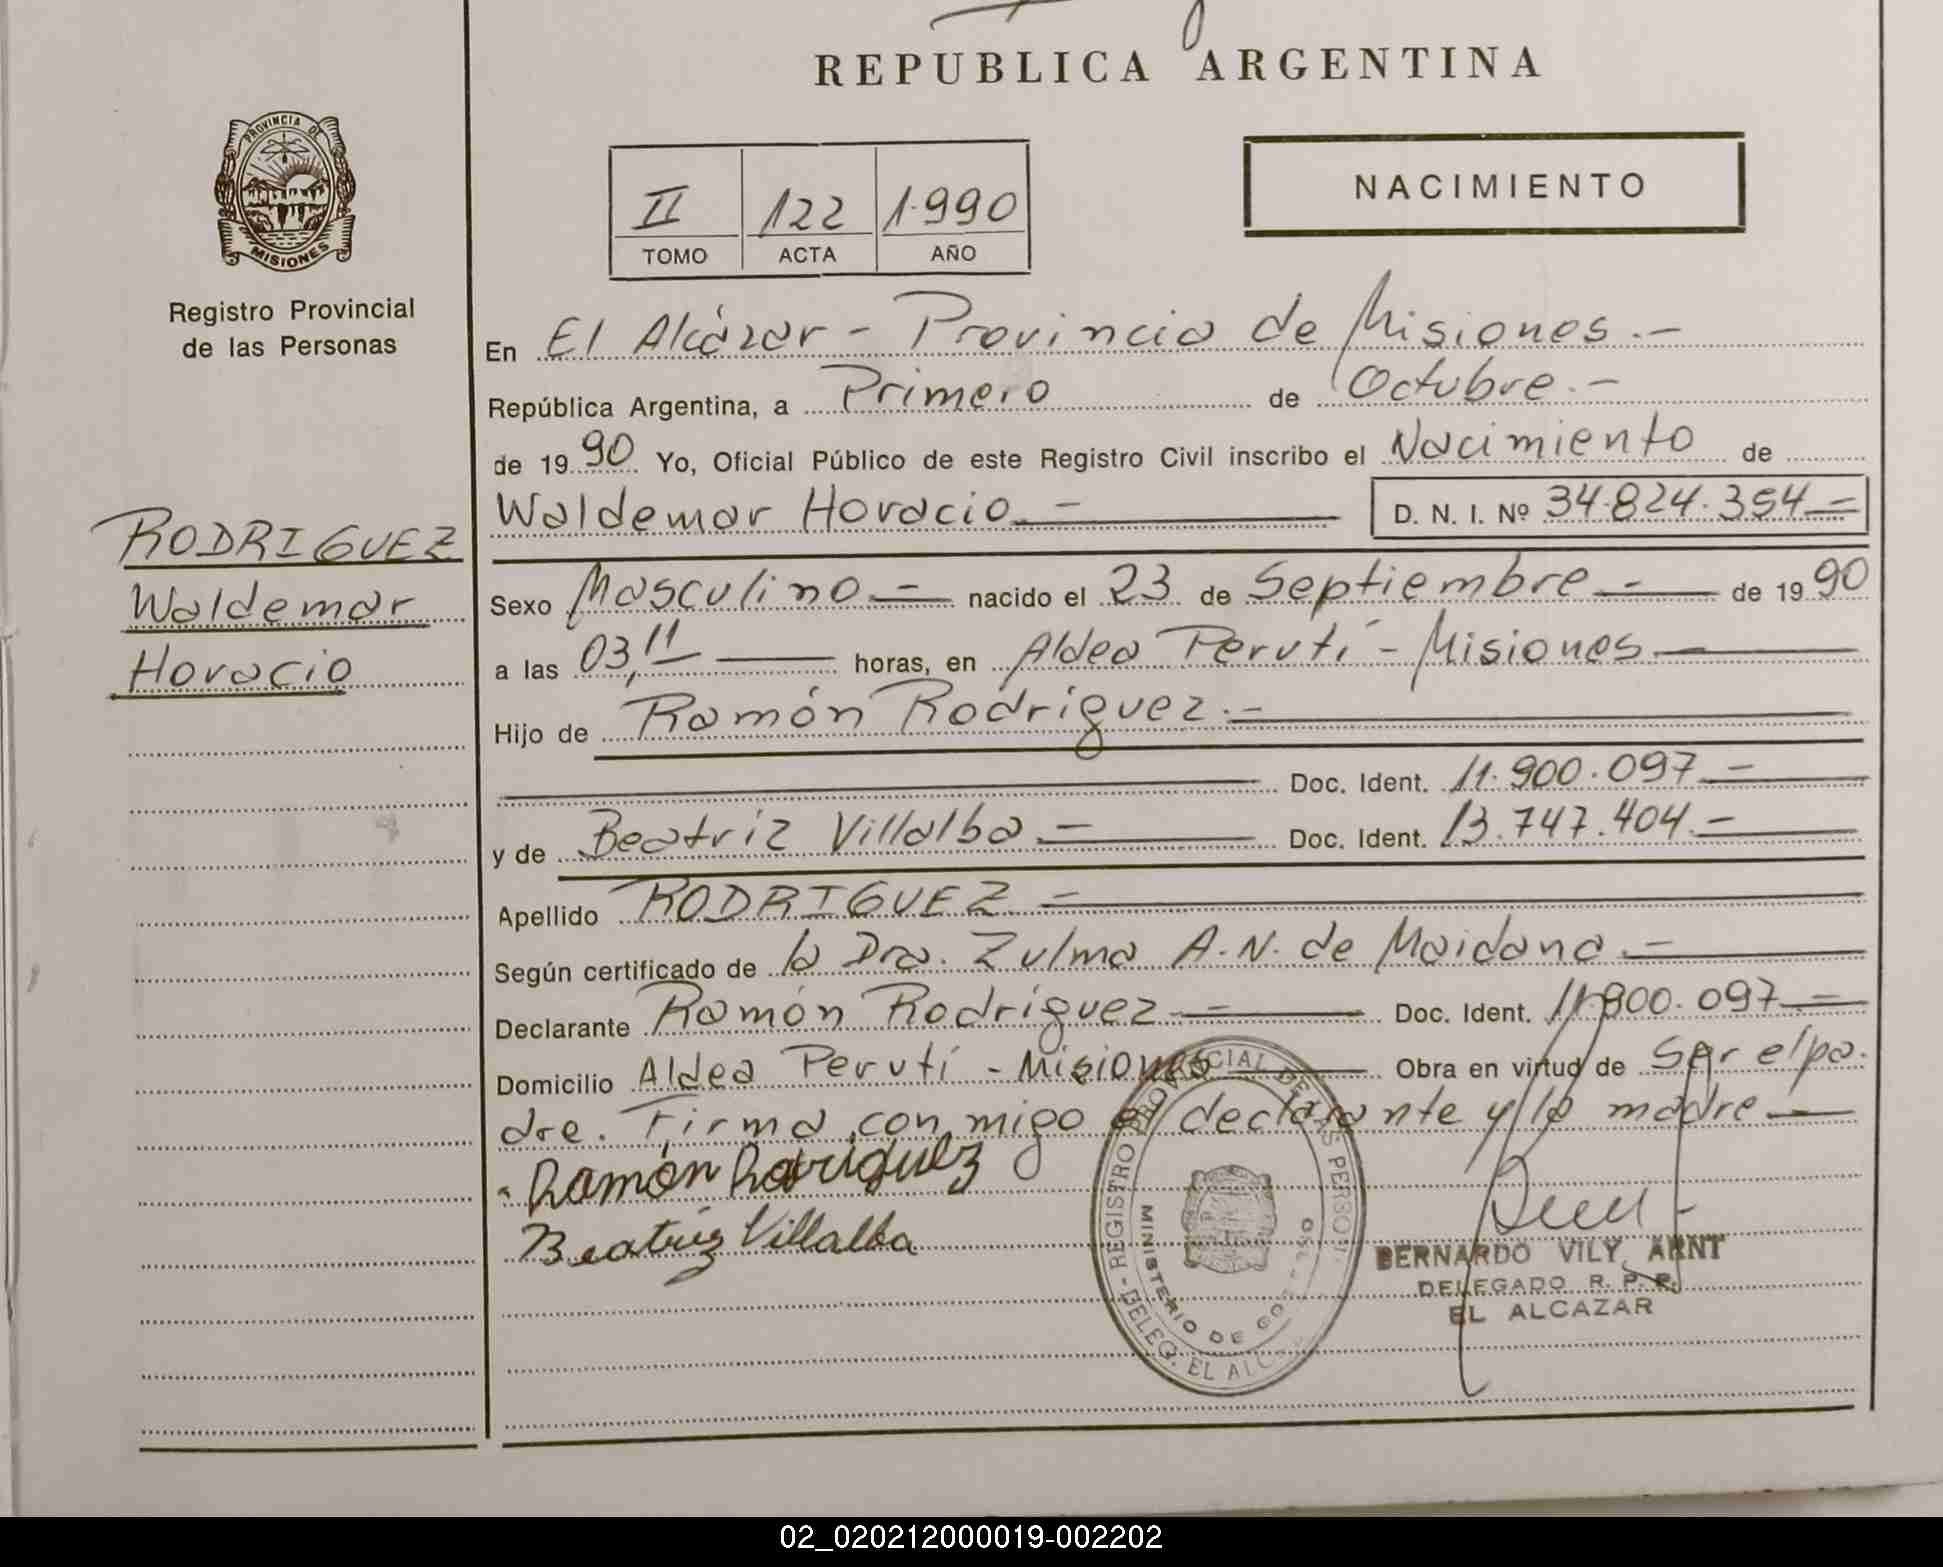 REPUBLICA ARGENTINA
PROVINCIA DE
MISIONES
Registro Provincial
de las Personas
II 122 1.990
TOMO ACTA AÑO
NACIMIENTO
En El Alcázar - Provincia de Misiones.-
República Argentina, a Primero de Octubre.-
de 1990 Yo, Oficial Público de este Registro Civil inscribo el Nacimiento de
Waldemar Horacio.- D. N. I. Nº 34.824.354-
RODRIGUEZ
Waldemar
Horacio
Sexo Masculino- nacido el 23 de Septiembre- de 1990
a las 03,11 horas, en Aldea Perutí - Misiones
Hijo de Ramón Rodríguez.-
Doc. Ident. 11.900.097-
y de Beatriz Villalba- Doc. Ident. 13.747.404.-
Apellido RODRIGUEZ-
Según certificado de la Dra. Zulma A. N. de Maidana.-
Declarante Ramón Rodríguez- Doc. Ident. 11.900.097-
Domicilio Aldea Perutí - Misiones Obra en virtud de Ser el pa-
dre. Firma con migo el declarante y la madre-
Ramón Rodriguez
Beatriz Villalba
REGISTRO PROVINCIAL DE LAS PERSO
MINISTERIO DE GO
DELEG. EL ALCA
BERNARDO VILY ARNT
DELEGADO R. P. P.
EL ALCAZAR
02_020212000019-002202